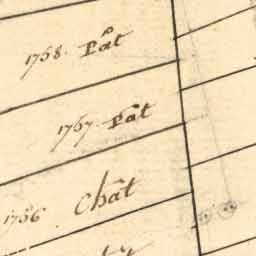 1758. Pât
1757. Pât
1756 Chât